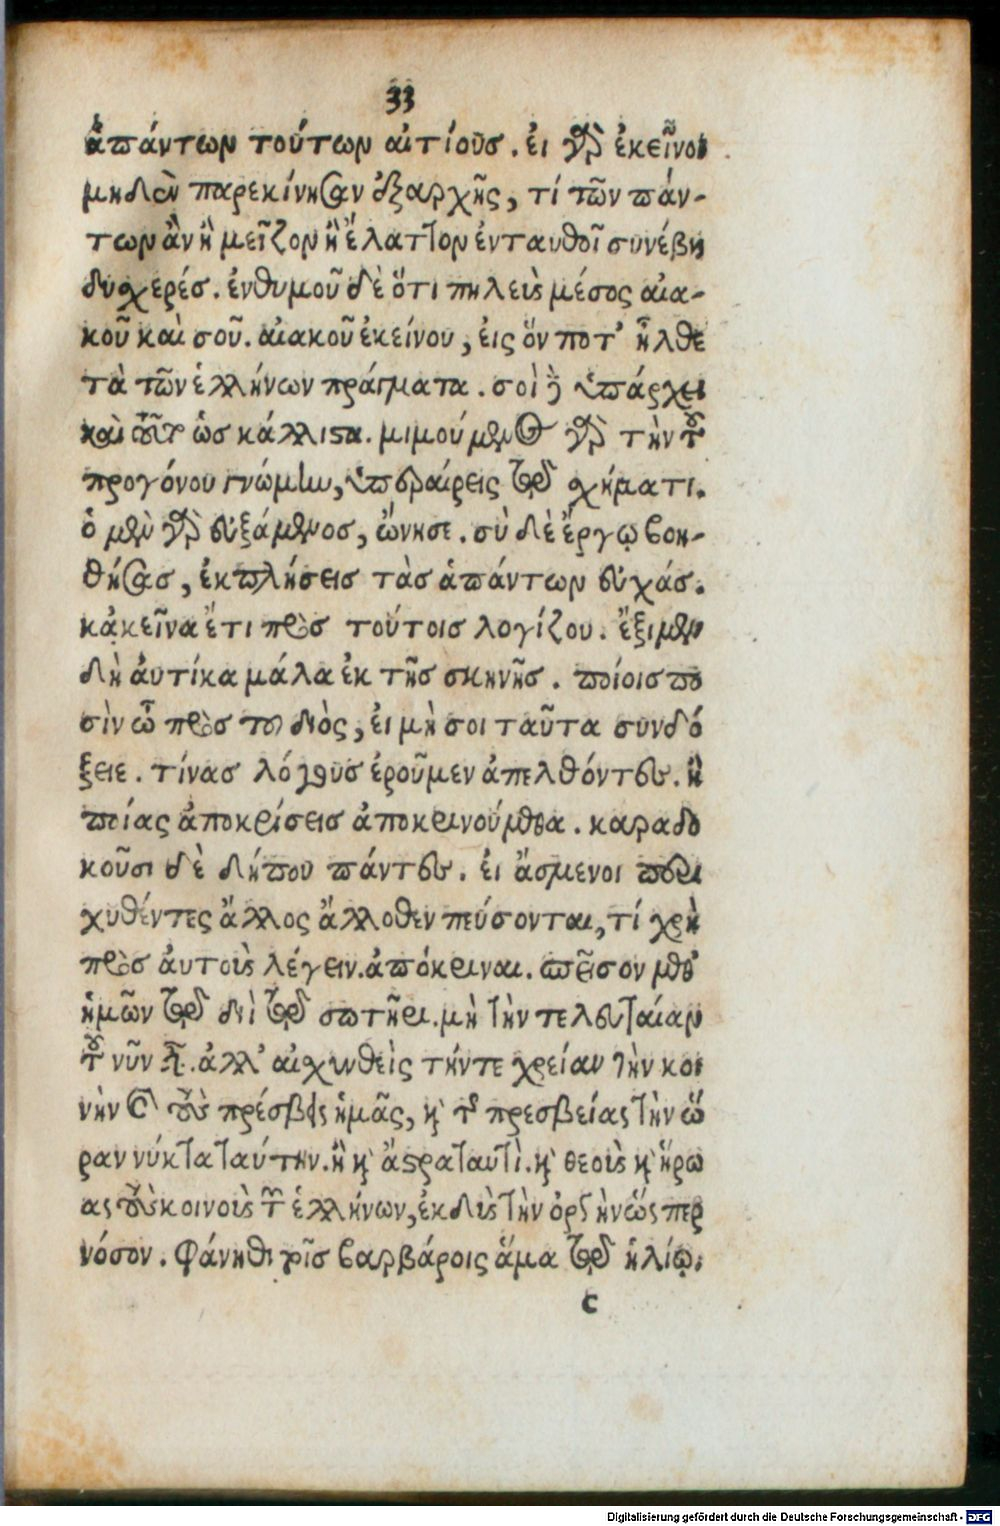 33
ἁπάντων τούτων αἰτίους. εἰ γὰρ ἐκεῖνοι
μηδὲν παρεκίνησαν ἐξαρχῆς, τί τῶν πάν-
των ἂν ἢ μεῖζον ἢ ἔλαττον ἐνταυθοῖ συνέβη
δυχερές. ἐνθυμοῦ δὲ ὅτι πηλεὺς μέσος αἰα-
κοῦ καὶ σοῦ. αἰακοῦ ἐκείνου, εἰς ὅν ποτ' ἦλθε
τὰ τῶν ἑλλήνων πράγματα. σοὶ ὑπάρχει
καὶ νῦν ὡς κάλλιστα. μιμούμενος γὰρ τὴν τοῦ
προγόνου γνώμην, ὑπεραίρεις τῷ χήματι.
ὁ μὲν γὰρ εὐξάμενος, ὤνησε. σὺ δὲ ἔργῳ βοη-
θήσας, ἐκπλήσεις τὰς ἁπάντων εὐχάς.
κἀκεῖνα ἔτι πρὸς τούτοις λογίζου. ἔξιμεν
δὴ αὐτίκα μάλα ἐκ τῆς σκηνῆς. ποίοις πο
σὶν ὦ πρὸς τοῦ διὸς, εἰ μὴ σοι ταῦτα συνδό
ξειε. τίνας λόγους ἐροῦμεν ἀπελθόντες. ἢ
ποίας ἀποκρίσεις ἀποκρινούμεθα. καραδο
κοῦσι δὲ δήπου πάντες. εἰ ἄσμενοι περι
χυθέντες ἄλλος ἄλλοθεν πεύσονται, τί χρὴ
πρὸς αὐτοὺς λέγειν. ἀπόκριναι. πεῖσον μεθ'
ἡμῶν τῷ διὶ τῷ σωτῆρι. μὴ τὴν τελευταίαν
τοῦ νῦν. ἀλλ' αἰχυνθεὶς τήντε χρείαν τὴν κοι
νὴν καὶ τοὺς πρέσβεις ἡμᾶς, καὶ τῆς πρεσβείας τὴν ὥ
ραν νύκτα ταύτην. ἢ καὶ ἄστρα ταυτὶ. καὶ θεοὺς καὶ ἥρω
ας τοὺς κοινοὺς τῶν ἑλλήνων, ἐκδὺς τὴν ὀργὴν ὥσπερ
νόσον. φάνηθι τοῖς βαρβάροις ἅμα τῷ ἡλίῳ.
c
Digitalisierung gefördert durch die Deutsche Forschungsgemeinschaft - DFG